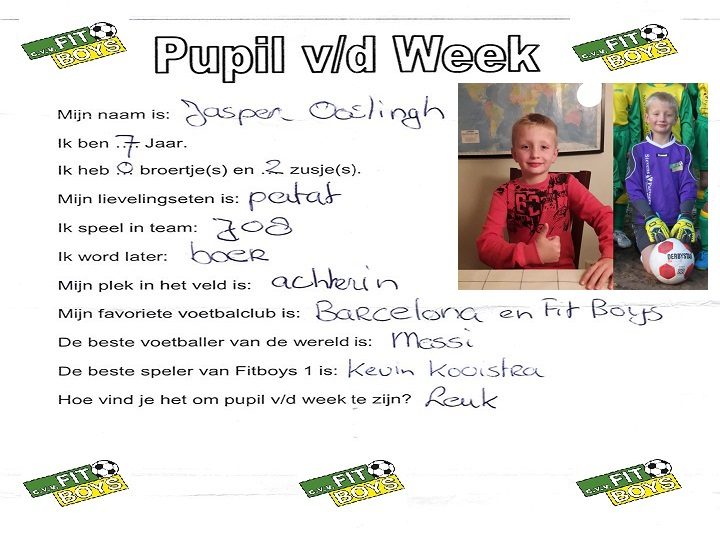 C.V.V. FIT BOYS
Pupil v/d Week
C.V.V. FIT BOYS
Mijn naam is: Jasper Ooslingh
Ik ben 7 Jaar.
Ik heb 0 broertje(s) en 2 zusje(s).
Mijn lievelingseten is: patat
Ik speel in team: JO8
Ik word later: boer
Mijn plek in het veld is: achterin
Mijn favoriete voetbalclub is: Barcelona en Fit Boys
De beste voetballer van de wereld is: Messi
De beste speler van Fitboys 1 is: Kevin Kooistra
Hoe vind je het om pupil v/d week te zijn? Leuk
DERBYSTAR
C.V.V. FIT BOYS
C.V.V. FIT BOYS
C.V.V. FIT BOYS